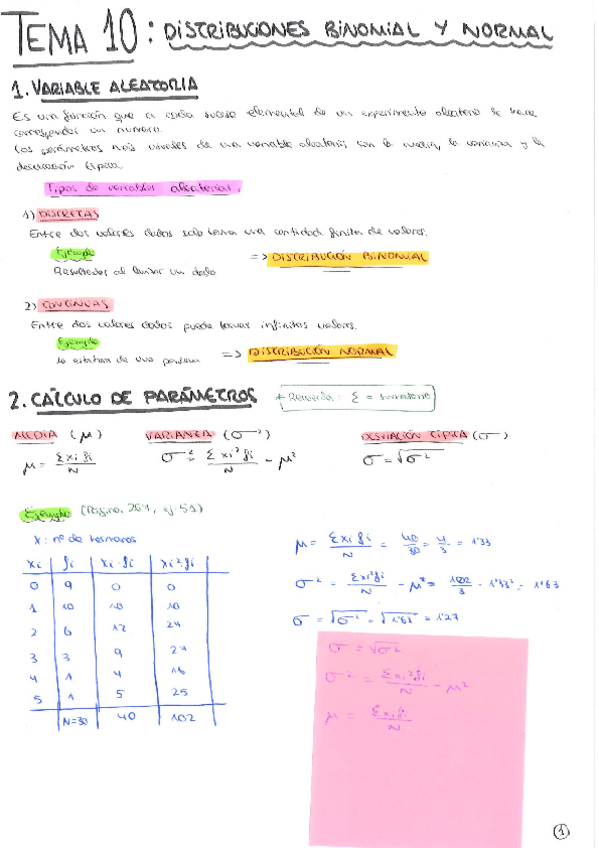 TEMA 10: DISTRIBUCIONES BINOMIAL Y NORMAL
1. VARIABLE ALEATORIA
Es una función que a cada suceso elemental de un experimento aleatorio le hace
corresponder un número.
Los parámetros más usuales de una variable aleatoria son la media, la varianza y la
desviación típica.
Tipos de variables aleatorias.
1) DISCRETAS
Entre dos valores dados solo toma una cantidad finita de valores.
Ejemplo
Resultados al lanzar un dado
=> DISTRIBUCIÓN BINOMIAL
2) CONTINUAS
Entre dos valores dados puede tomar infinitos valores.
Ejemplo
la estatura de una persona => DISTRIBUCIÓN NORMAL
2. CÁLCULO DE PARÁMETROS * Recuerda: Σ = sumatorio
MEDIA (μ) VARIANZA (σ²) DESVIACIÓN TÍPICA (σ)
μ = Σxifi/N σ² = Σxi²fi/N - μ² σ = √σ²
Ejemplo (Página 261, ej. 51)
X: nº de hermanos
xi fi xi·fi xi²·fi
0 9 0 0
1 10 10 10
2 6 12 24
3 3 9 27
4 1 4 16
5 1 5 25
N=30 40 102
μ = Σxifi/N = 40/30 = 4/3 = 1'33
σ² = Σxi²fi/N - μ² = 102/3 - 1'33² = 1'63
σ = √σ² = √1'63 = 1'27
σ = √σ²
σ² = Σxi²fi/N - μ²
μ = Σxifi/N
1